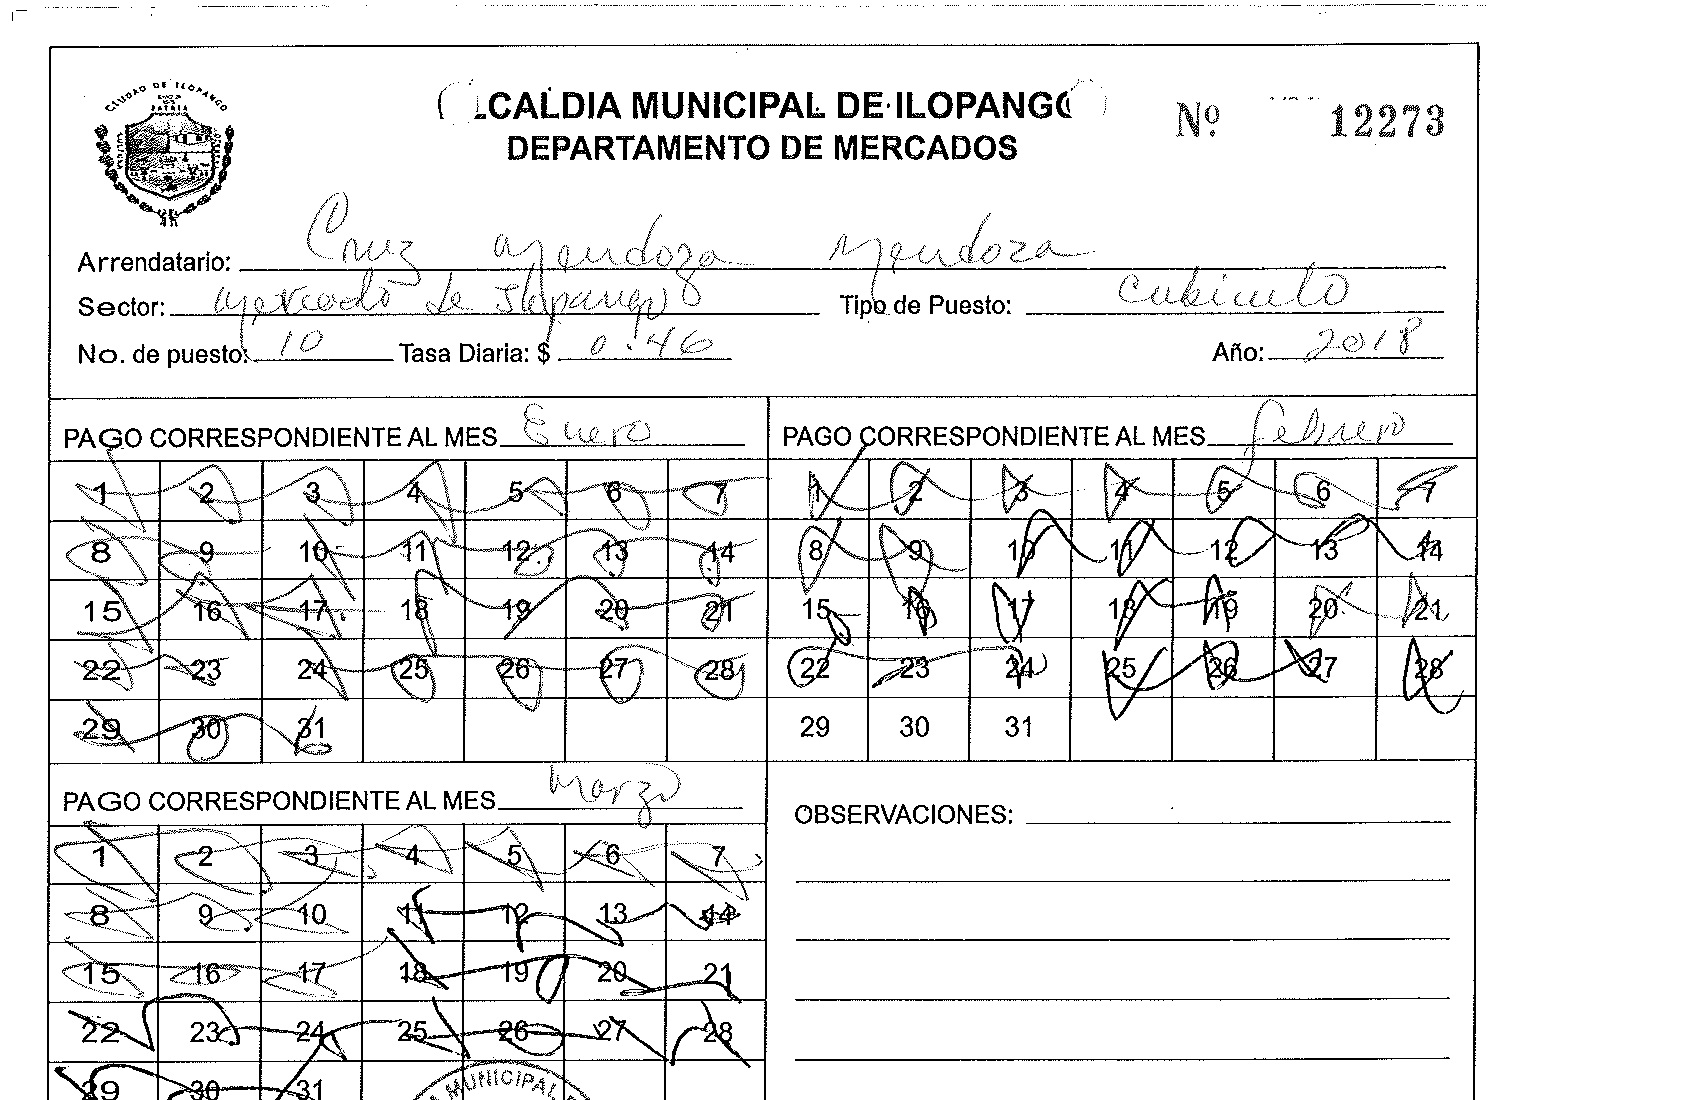 CIUDAD DE ILOPANGO
LCALDIA MUNICIPAL DE ILOPANGO
Nº 12273
DEPARTAMENTO DE MERCADOS
Arrendatario: Cruz Mendoza Mendoza
Sector: Mercado de Ilopango Tipo de Puesto: Cubiculo
No. de puesto: 10 Tasa Diaria: $ 0.46 Año: 2018
PAGO CORRESPONDIENTE AL MES Enero
1 2 3 4 5 6 7
8 9 10 11 12 13 14
15 16 17 18 19 20 21
22 23 24 25 26 27 28
29 30 31
PAGO CORRESPONDIENTE AL MES febrero
1 2 3 4 5 6 7
8 9 10 11 12 13 14
15 16 17 18 19 20 21
22 23 24 25 26 27 28
29 30 31
PAGO CORRESPONDIENTE AL MES Marzo
1 2 3 4 5 6 7
8 9 10 11 12 13 14
15 16 17 18 19 20 21
22 23 24 25 26 27 28
29 30 31
MUNICIPAL
OBSERVACIONES: